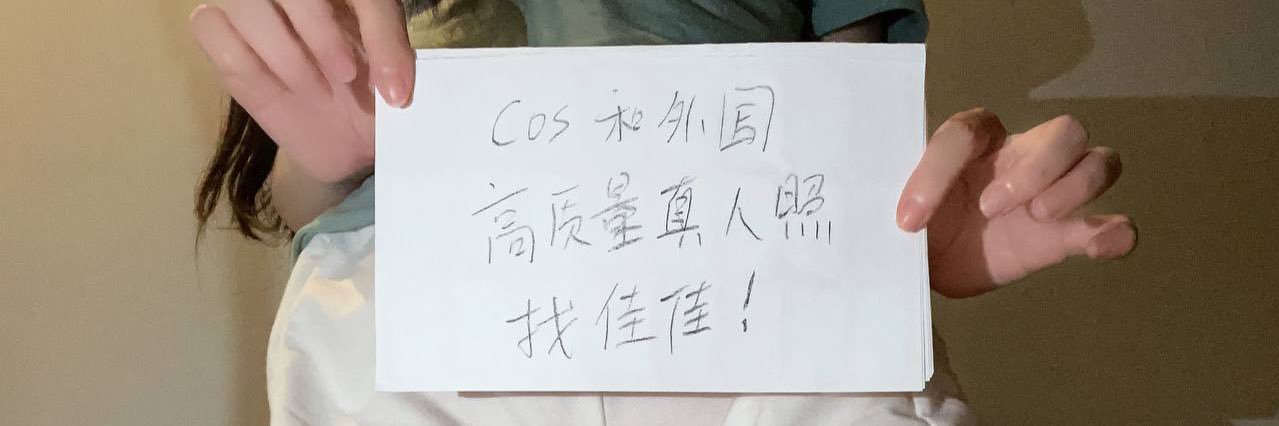 Cos和外国
高质量真人照
找佳佳！